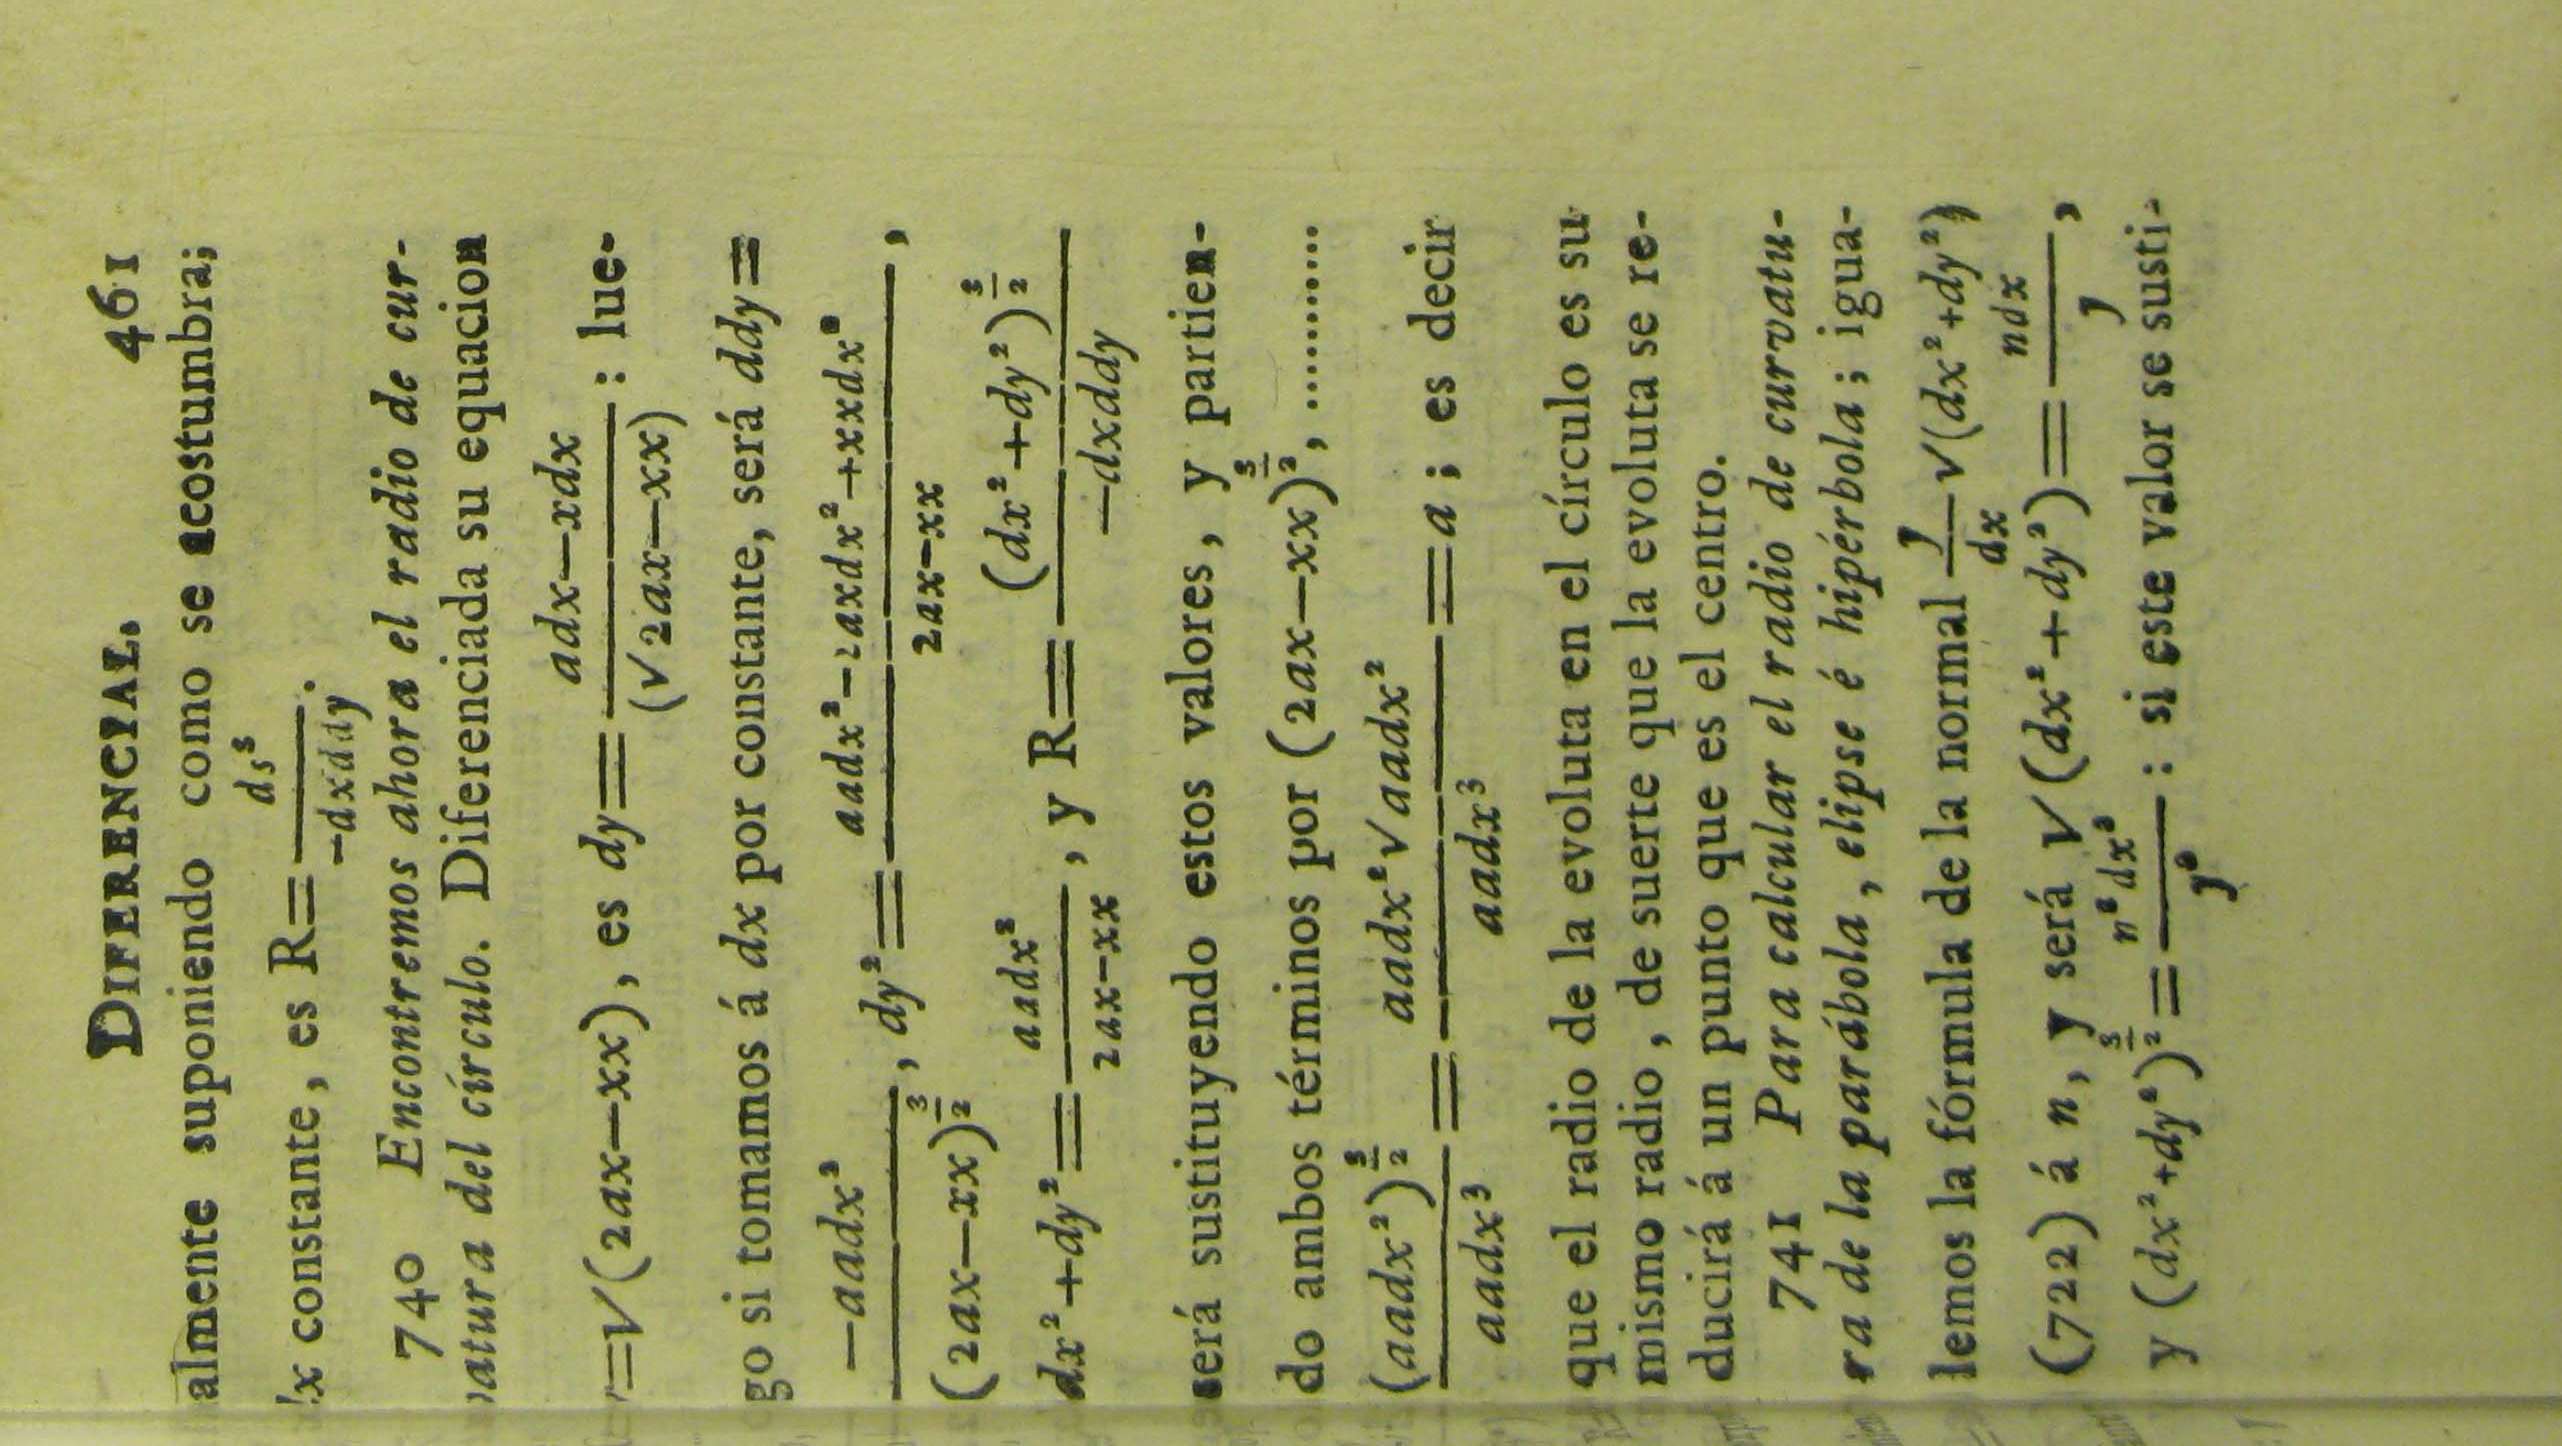 DIFERENCIAL. 461
almente suponiendo como se acostumbra;
x constante, es R=ds³/−dxddy.
740 Encontremos ahora el radio de cur-
vatura del círculo. Diferenciada su equacion
y=√(2ax−xx), es dy=adx−xdx/(√2ax−xx) : lue-
go si tomamos á dx por constante, será ddy=
−aadx²/(2ax−xx)^3/2, dy²=aadx²−2axdx²+xxdx²/2ax−xx,
dx²+dy²=aadx²/2ax−xx, y R=(dx²+dy²)^3/2/−dxddy
será sustituyendo estos valores, y partien-
do ambos términos por (2ax−xx)^3/2, ..........
(aadx²)^3/2/aadx³=aadx²√aadx²/aadx³=a; es decir
que el radio de la evoluta en el círculo es su
mismo radio, de suerte que la evoluta se re-
ducirá á un punto que es el centro.
741 Para calcular el radio de curvatu-
ra de la parábola, elipse é hipérbola; igua-
lemos la fórmula de la normal y/dx√(dx²+dy²)
(722) á n, y será √(dx²+dy²)=ndx/y,
y (dx²+dy²)^3/2=n³dx³/y³ : si este valor se susti-